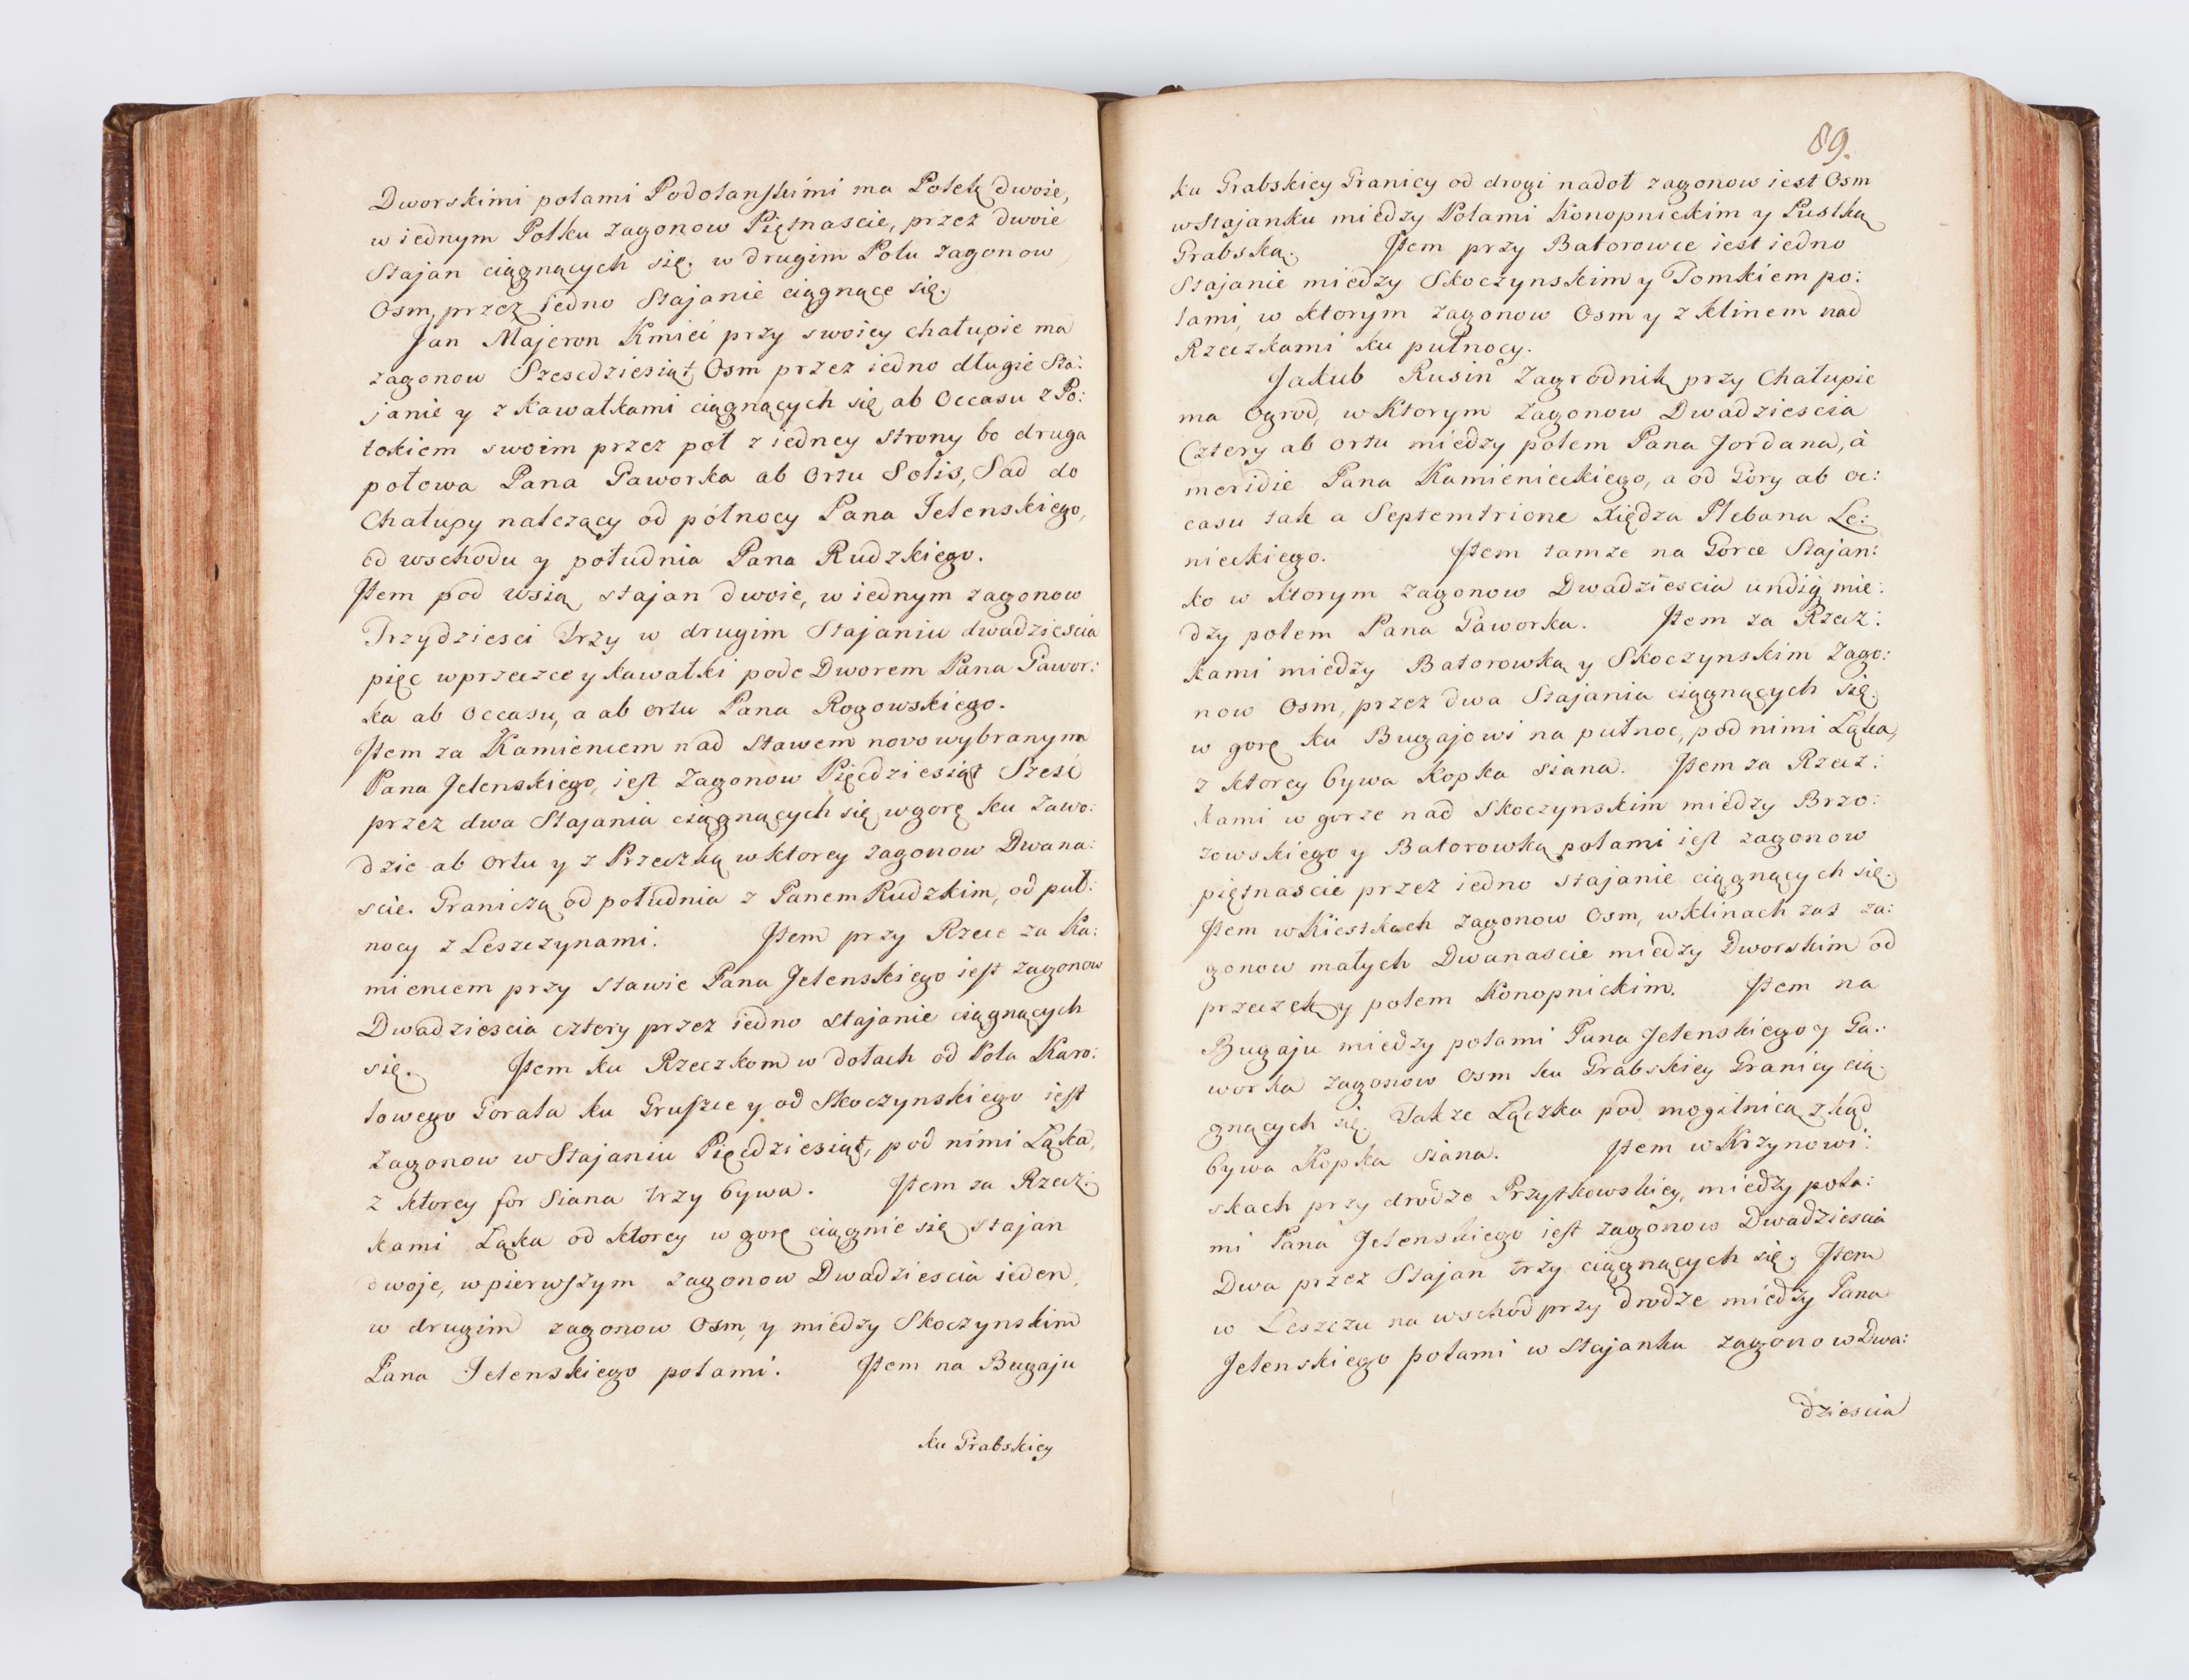 Dworskimi polami Podolanskimi ma Polek dwoie,
w iednym Polku zagonow Piętnascie, przez dwoie
Stajan ciągnących się. w drugim Polu zagonow
Osm, przez iedno Stajanie ciągnące się.
Jan Majeron Kmieć przy swoiey chałupie ma
zagonow Szescdziesiąt Osm przez iedno długie Sta:
janie y z kawałkami ciągnących się ab Occasu z Po:
tokiem swoim przez poł z iedney strony bo druga
połowa Pana Gaworka ab Ortu Solis, Sad do
Chałupy nalczący od pólnocy Pana Jelenskiego,
od wschodu y południa Pana Rudzkiego.
Jtem pod wsią stajan dwoie, w iednym zagonow
Trzydziesci Trzy w drugim Stajaniu dwadziescia
pięc wprzeczce y kawałki pode Dworem Pana Gawor:
ka ab Occasu, a ab ortu Pana Rogowskiego.
Jtem za Kamieniem nad Stawem novo wybranym
Pana Jelenskiego, iest Zagonow Pięcdziesiąt Szesc
przez dwa Stajania ciągnących się wgorę ku Zawo:
dzie ab Ortu y z Przeczką w ktorey zagonow Dwana:
scie. Graniczą od południa z Panem Rudzkim, od puł:
nocy z Leszczynami. Jtem przy Rzece za Ka:
mieniem przy stawie Pana Jelenskiego iest zagonow
Dwadziescia cztery przez iedno stajanie ciągnących
się. Jtem ku Rzeczkom w dołach od Pola Karo:
lowego Gorala ku Gruszce y od Skoczynskiego iest
zagonow w Stajaniu Pięcdziesiąt, pod nimi Ląka,
z ktorey for Siana trzy bywa. Jtem za Rzecz:
kami Ląka od ktorey w gorę ciągnie się stajan
dwoje, w pierwszym zagonow Dwadziescia ieden,
w drugim zagonow Osm, y miedzy Skoczynskim
Pana Jelenskiego polami. Jtem na Bugaju
ku Grabskiey
89.
ku Grabskiey Granicy od drogi nadoł zagonow iest Osm
w Stajanku miedzy Polami Konopnickim y Pustką
Grabską. Jtem przy Batorowce iest iedno
Stajanie miedzy Skoczynskim y Tomkiem po:
lami, w ktorym zagonow Osm y z klinem nad
Rzeczkami ku pułnocy.
Jakub Rusin Zagrodnik przy Chałupie
ma Ogrod, w Ktorym zagonow Dwadziescia
Cztery ab ortu miedzy polem Pana Jordana, à
meridie Pana Kamienieckiego, a od Gory ab oc:
casu tak a Septemtrione Xiędza Plebana Le:
nieckiego. Jtem tamze na Gorce Stajan:
ko w ktorym zagonow Dwadziescia undiq mie:
dzy polem Pana Gaworka. Jtem za Rzecz:
kami miedzy Batorowką y Skoczynskim Zago:
now Osm, przez dwa Stajania ciągnących się
w gorę ku Bugajowi na pułnoc, pod nimi Ląka,
z ktorey bywa Kopka siana. Jtem za Rzecz:
kami w gorze nad Skoczynskim miedzy Brzo:
zowskiego y Batorowką polami iest zagonow
piętnascie przez iedno stajanie ciągnących się.
Jtem w Kiestkach zagonow Osm, w klinach zas za:
gonow małych Dwanascie miedzy Dworskim od
przeczek y polem Konopnickim. Jtem na
Bugaju miedzy polami Pana Jelenskiego y Ga:
worka zagonow Osm ku Grabskiey Granicy cią:
gnących się. Takze Lączka pod mogilnicą zkąd
bywa Kopka siana. Jtem w Krzynowi:
skach przy drodze Przytkowskiey, miedzy pola:
mi Pana Jelenskiego iest zagonow Dwadziescia
Dwa przez Stajan trzy ciągnących się. Jtem
w Leszczu na wschod przy drodze miedzy Pana
Jelenskiego polami w Stajanku zagonow Dwa:
dziescia